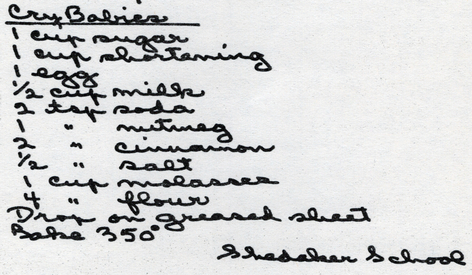 Cry Babies
1 cup sugar
1 cup shortening
1 egg
1/2 cup milk
2 tsp soda
1 " nutmeg
2 " cinnamon
1/2 " salt
1 cup molasses
4 " flour
Drop on greased sheet
Bake 350°
Shedaker School